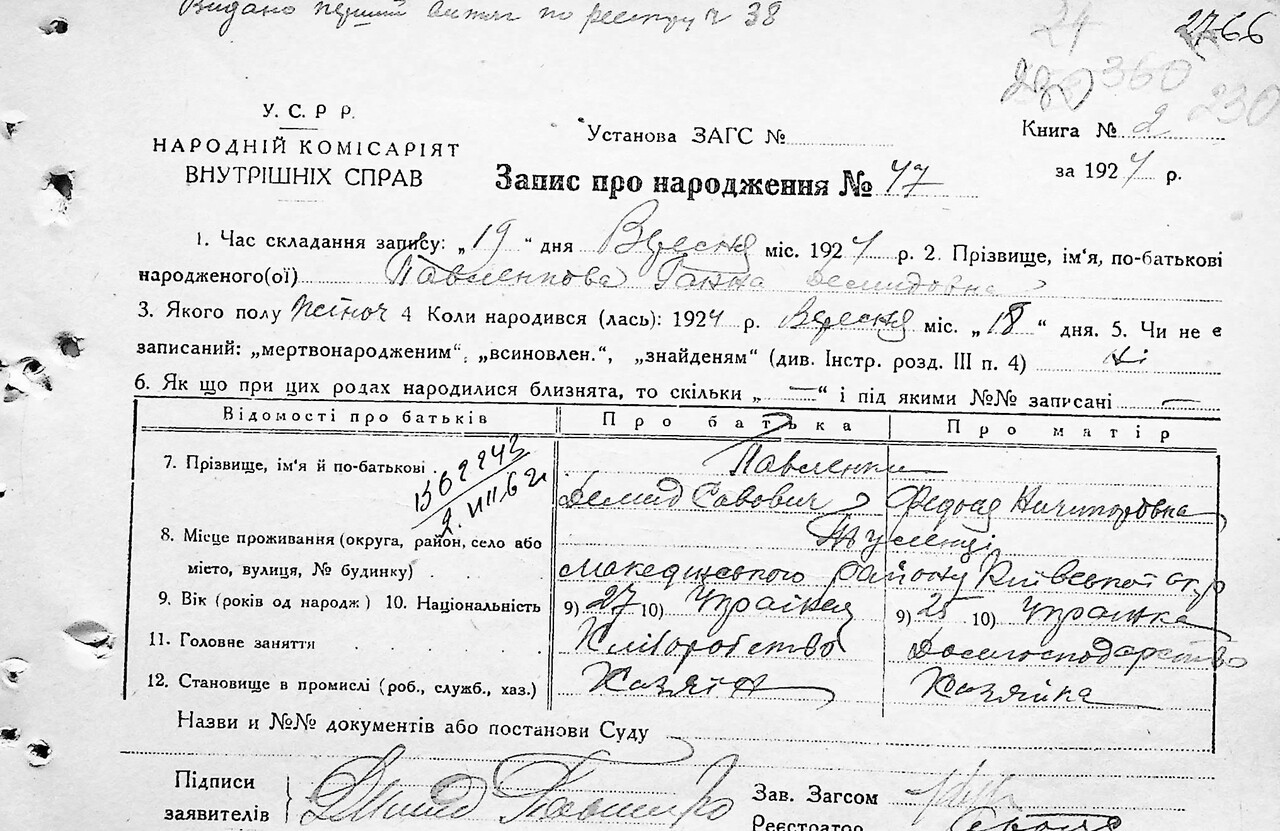 Видано перший витяг по реєстру ч 38
2766
24
360
230
У. С. Р Р.
НАРОДНІЙ КОМІСАРІЯТ
ВНУТРІШНІХ СПРАВ
Установа ЗАГС №
Книга № 2
за 1924 р.
Запис про народження № 47
1. Час складання запису: „ 19 “ дня Вересня міс. 1924 р. 2. Прізвище, ім'я, по-батькові
народженого(ої) Павленкова Ганна Демидовна
3. Якого полу жіноч 4 Коли народився (лась): 1924 р. Вересня міс. „ 18 “ дня. 5. Чи не є
записаний: „мертвонародженим“, „всиновлен.“, „знайденям“ (див. Інстр. розд. III п. 4) ні
6. Як що при цих родах народилися близнята, то скільки „ — “ і під якими №№ записані —
Відомості про батьків Про батька Про матір
7. Прізвище, ім'я й по-батькові Павленки
Демид Савович Федося Ничипоровна
8. Місце проживання (округа, район, село або
місто, вулиця, № будинку) Македонського району Київської окр
9. Вік (років од народж) 10. Національність 9) 27 10) Українец 9) 25 10) Українка
11. Головне заняття Хліборобство Домгосподарство
12. Становище в промислі (роб., служб., хаз.) Хазяїн Хазяйка
Назви и №№ документів або постанови Суду
Підписи
заявителів
Демид Павленко
Зав. Загсом
Реєстратор